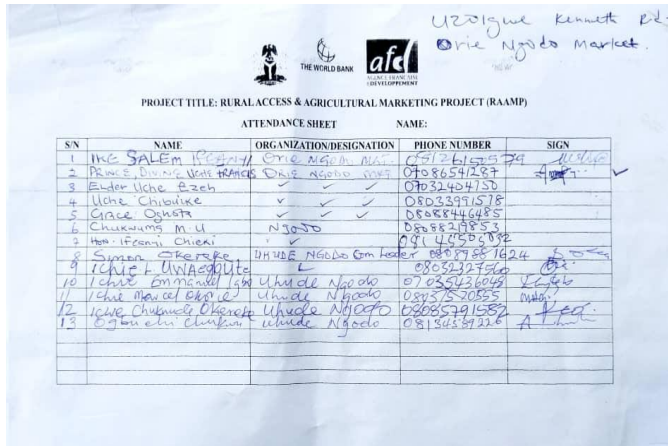 Uzoigwe Kenneth Rd.
Orie Ngodo Market.
THE WORLD BANK
afd
AGENCE FRANÇAISE
DE DÉVELOPPEMENT
PROJECT TITLE: RURAL ACCESS & AGRICULTURAL MARKETING PROJECT (RAAMP)
ATTENDANCE SHEET NAME:
S/N NAME ORGANIZATION/DESIGNATION PHONE NUMBER SIGN
1 IKE SALEM IFEANYI Orie Ngodo
2 PRINCE, DIVINE UCHE FRANCIS ORIE NGODO 07086541287
3 Elder Uche Ezeh 07032404750
4 Uche Chibuike 08033991578
5 Grace 08088446485
6 Chukwuma M.U Ngodo 08088219853
7 Hon. Ifeanyi
8 Simon Okereke UHUDE NGODO Com Leader
9 Ichie 08032327560
10 Ichie Emmanuel Uhude Ngodo 07035436045
11 Ichie Marcel Okorie Uhude Ngodo 08037520555
12 Ichie Chukwude Okereke Uhude Ngodo 08085791582
13 Ogbuchi Uhude Ngodo 08134589226